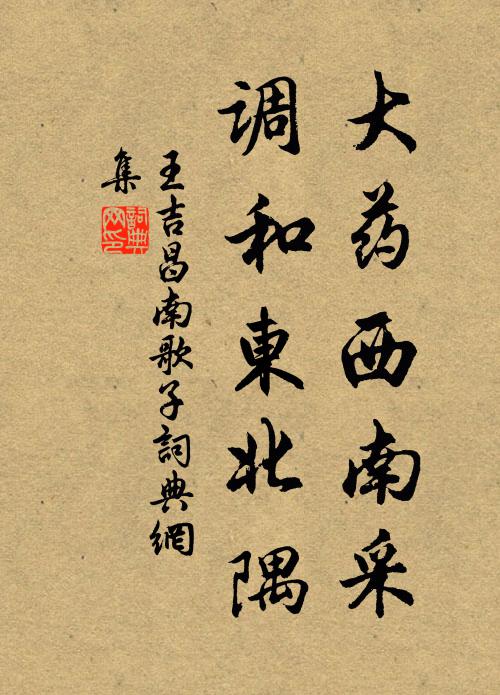 大药西南采
调和東北隅
王吉昌南歌子詞典網
集
詞典
网印